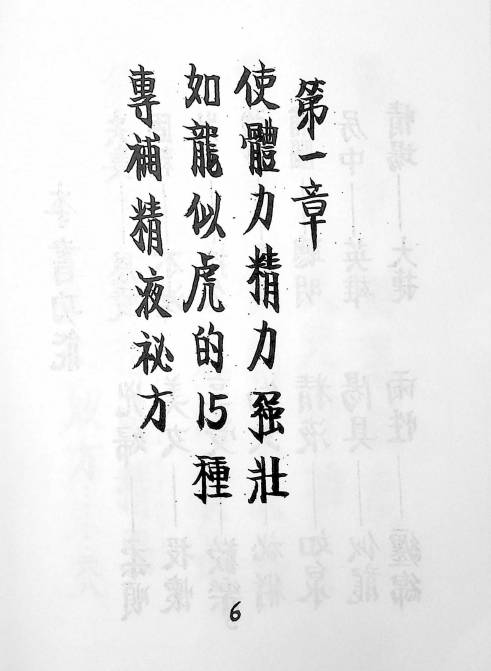 第一章
使體力精力强壯
如龍似虎的15種
專補精液祕方
6